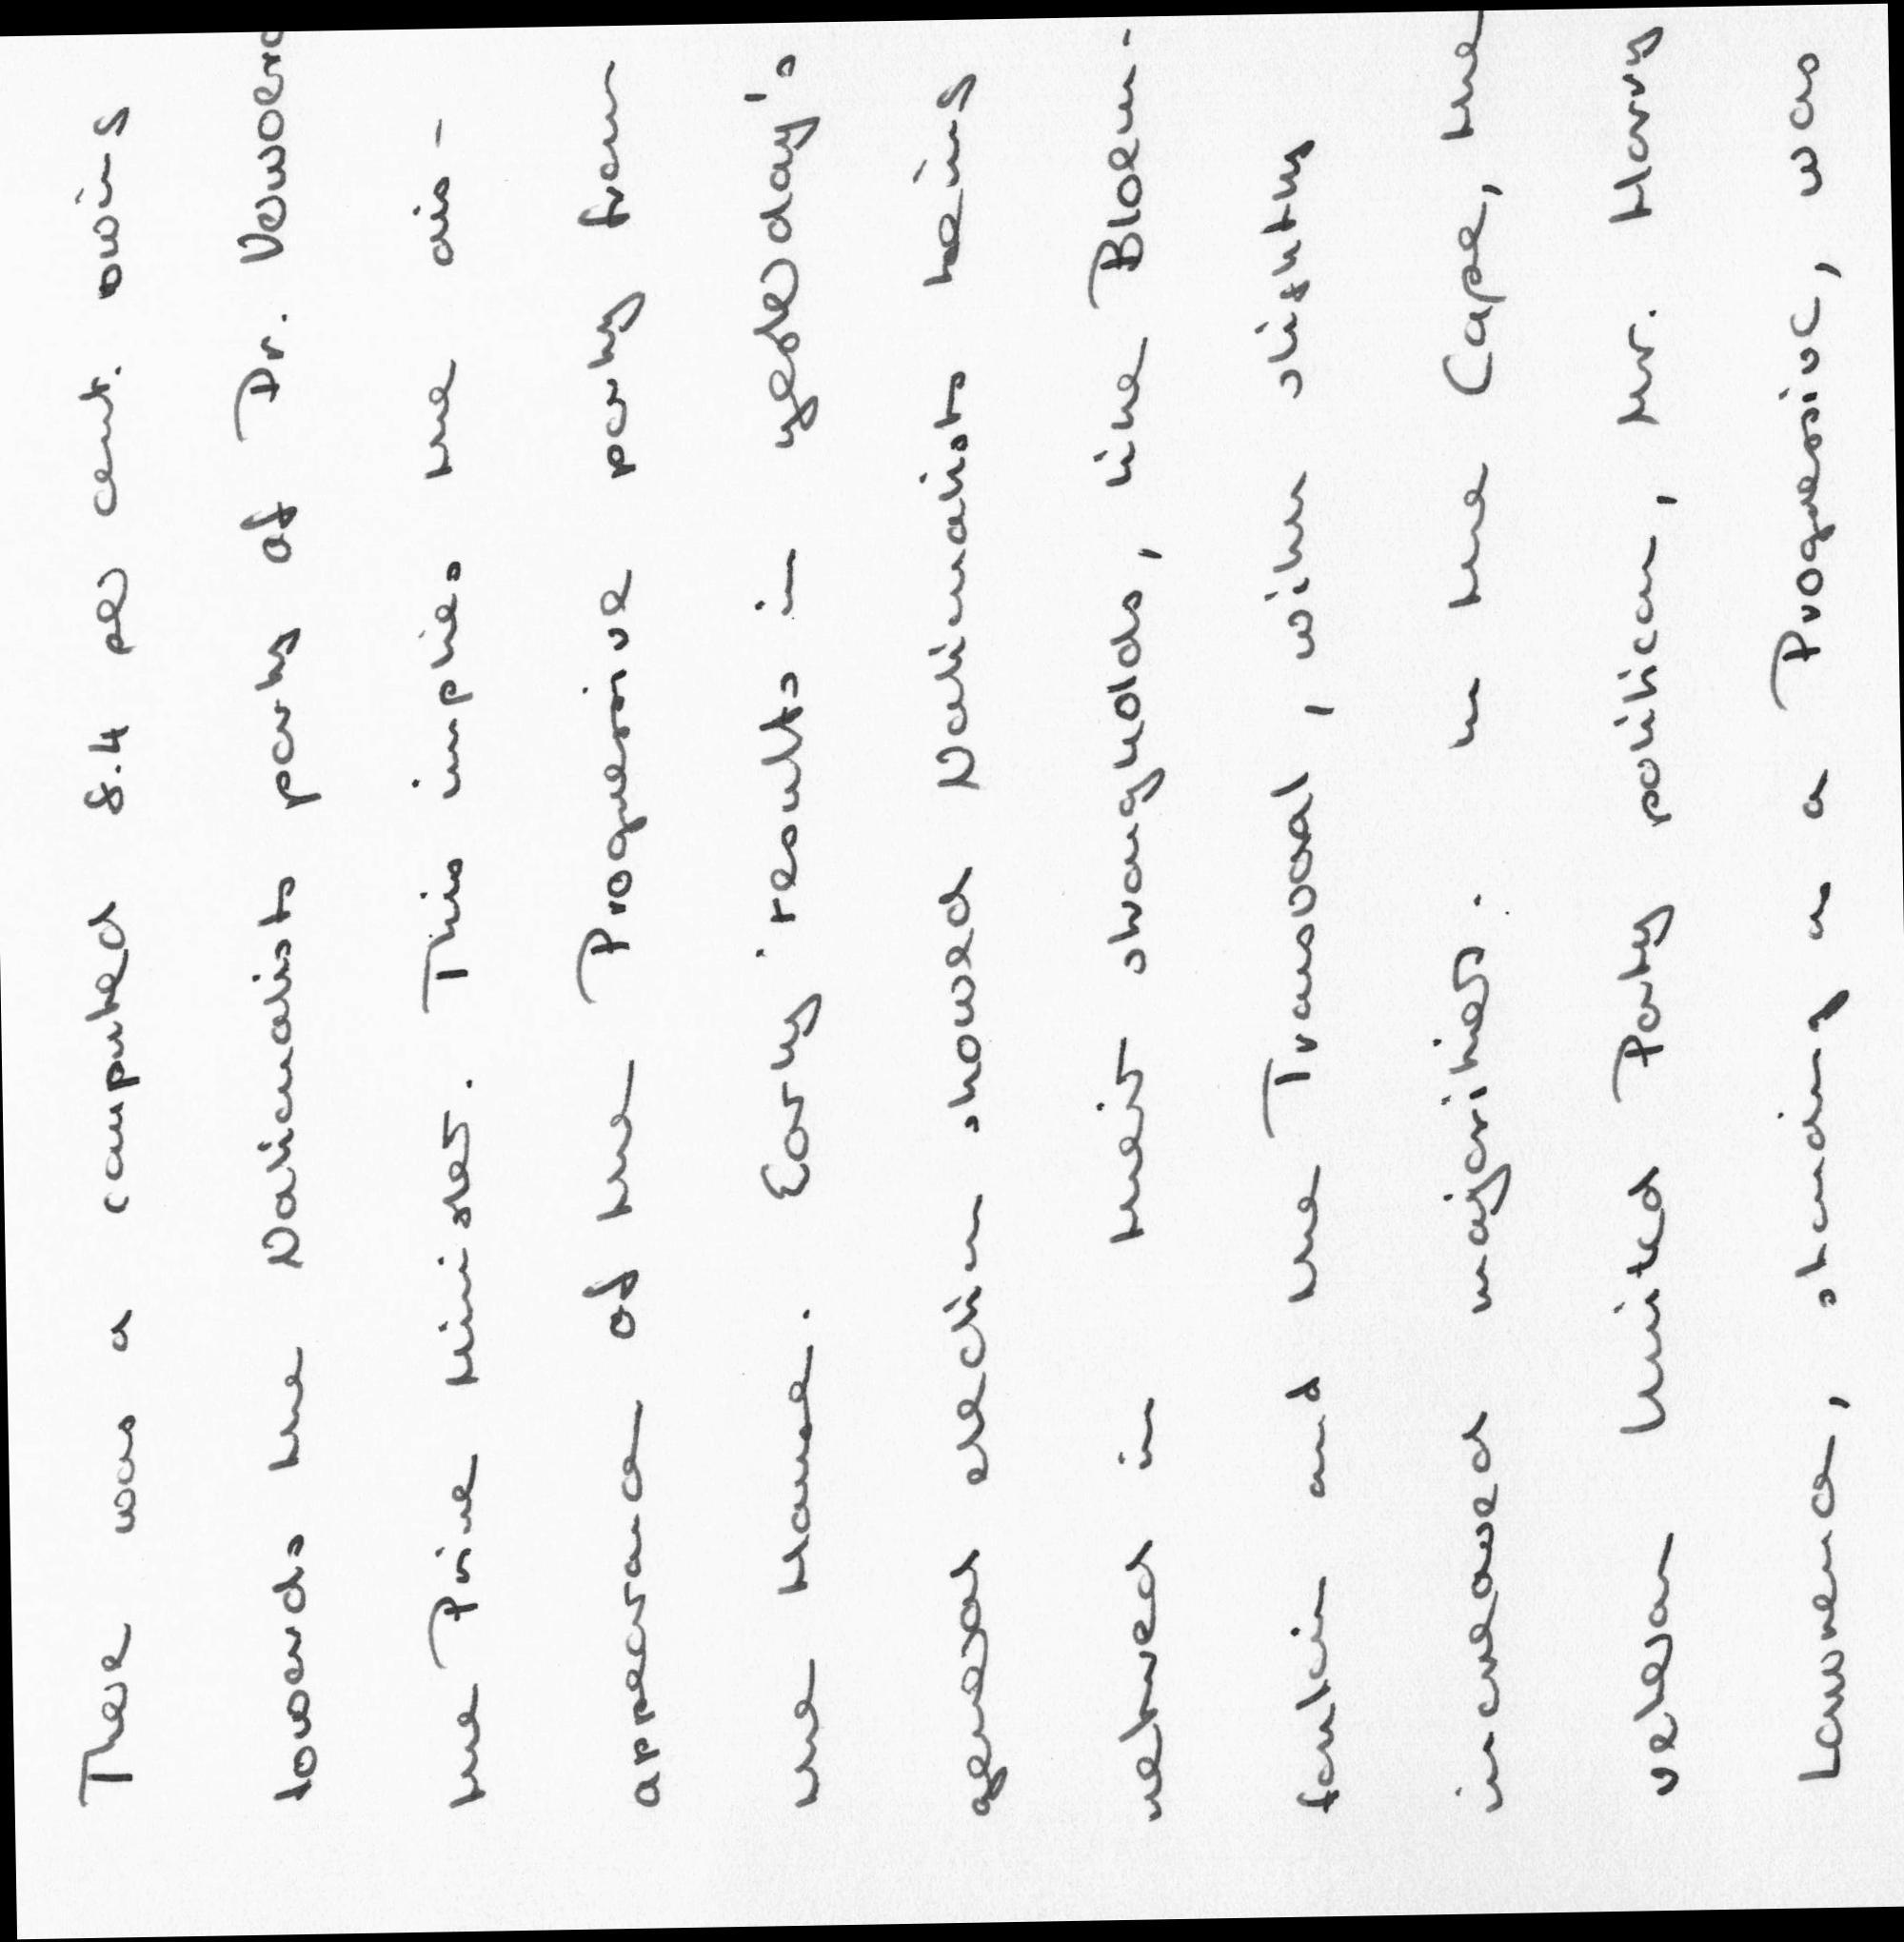 There was a computed 8.4 per cent. swing
towards the Nationalist party of Dr. Verwoerd
the Prime Minister. This implies the dis-
appearance of the Progressive party from
the House. Early results in yesterday's
general election showed Nationalists being
returned in their strongholds, like Bloem-
fontein and the Transvaal, with slightly
increased majorities. In the Cape, the
veteran United Party politican, Mr. Harry
Lawrence, standing as a Progressive, was